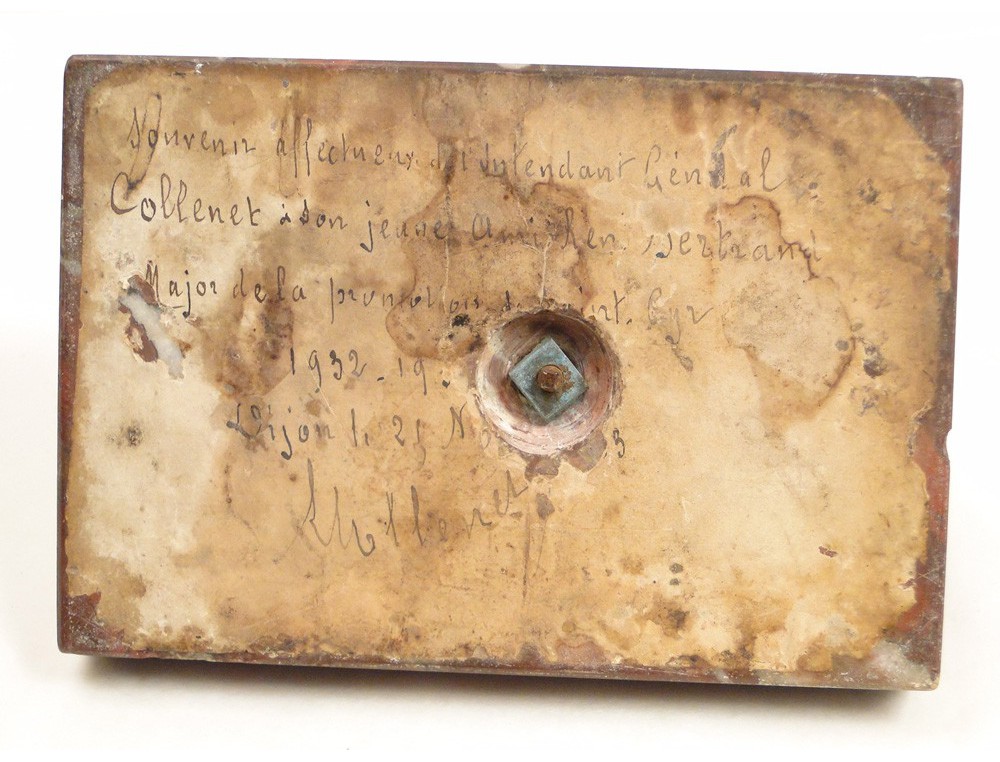 Souvenir affectueux de l'Intendant Général
Collenet à son jeune Ami Bertrand
Major de la promotion de Saint. Cyr
1932 - 19
Dijon le 25 No 3
Collenet